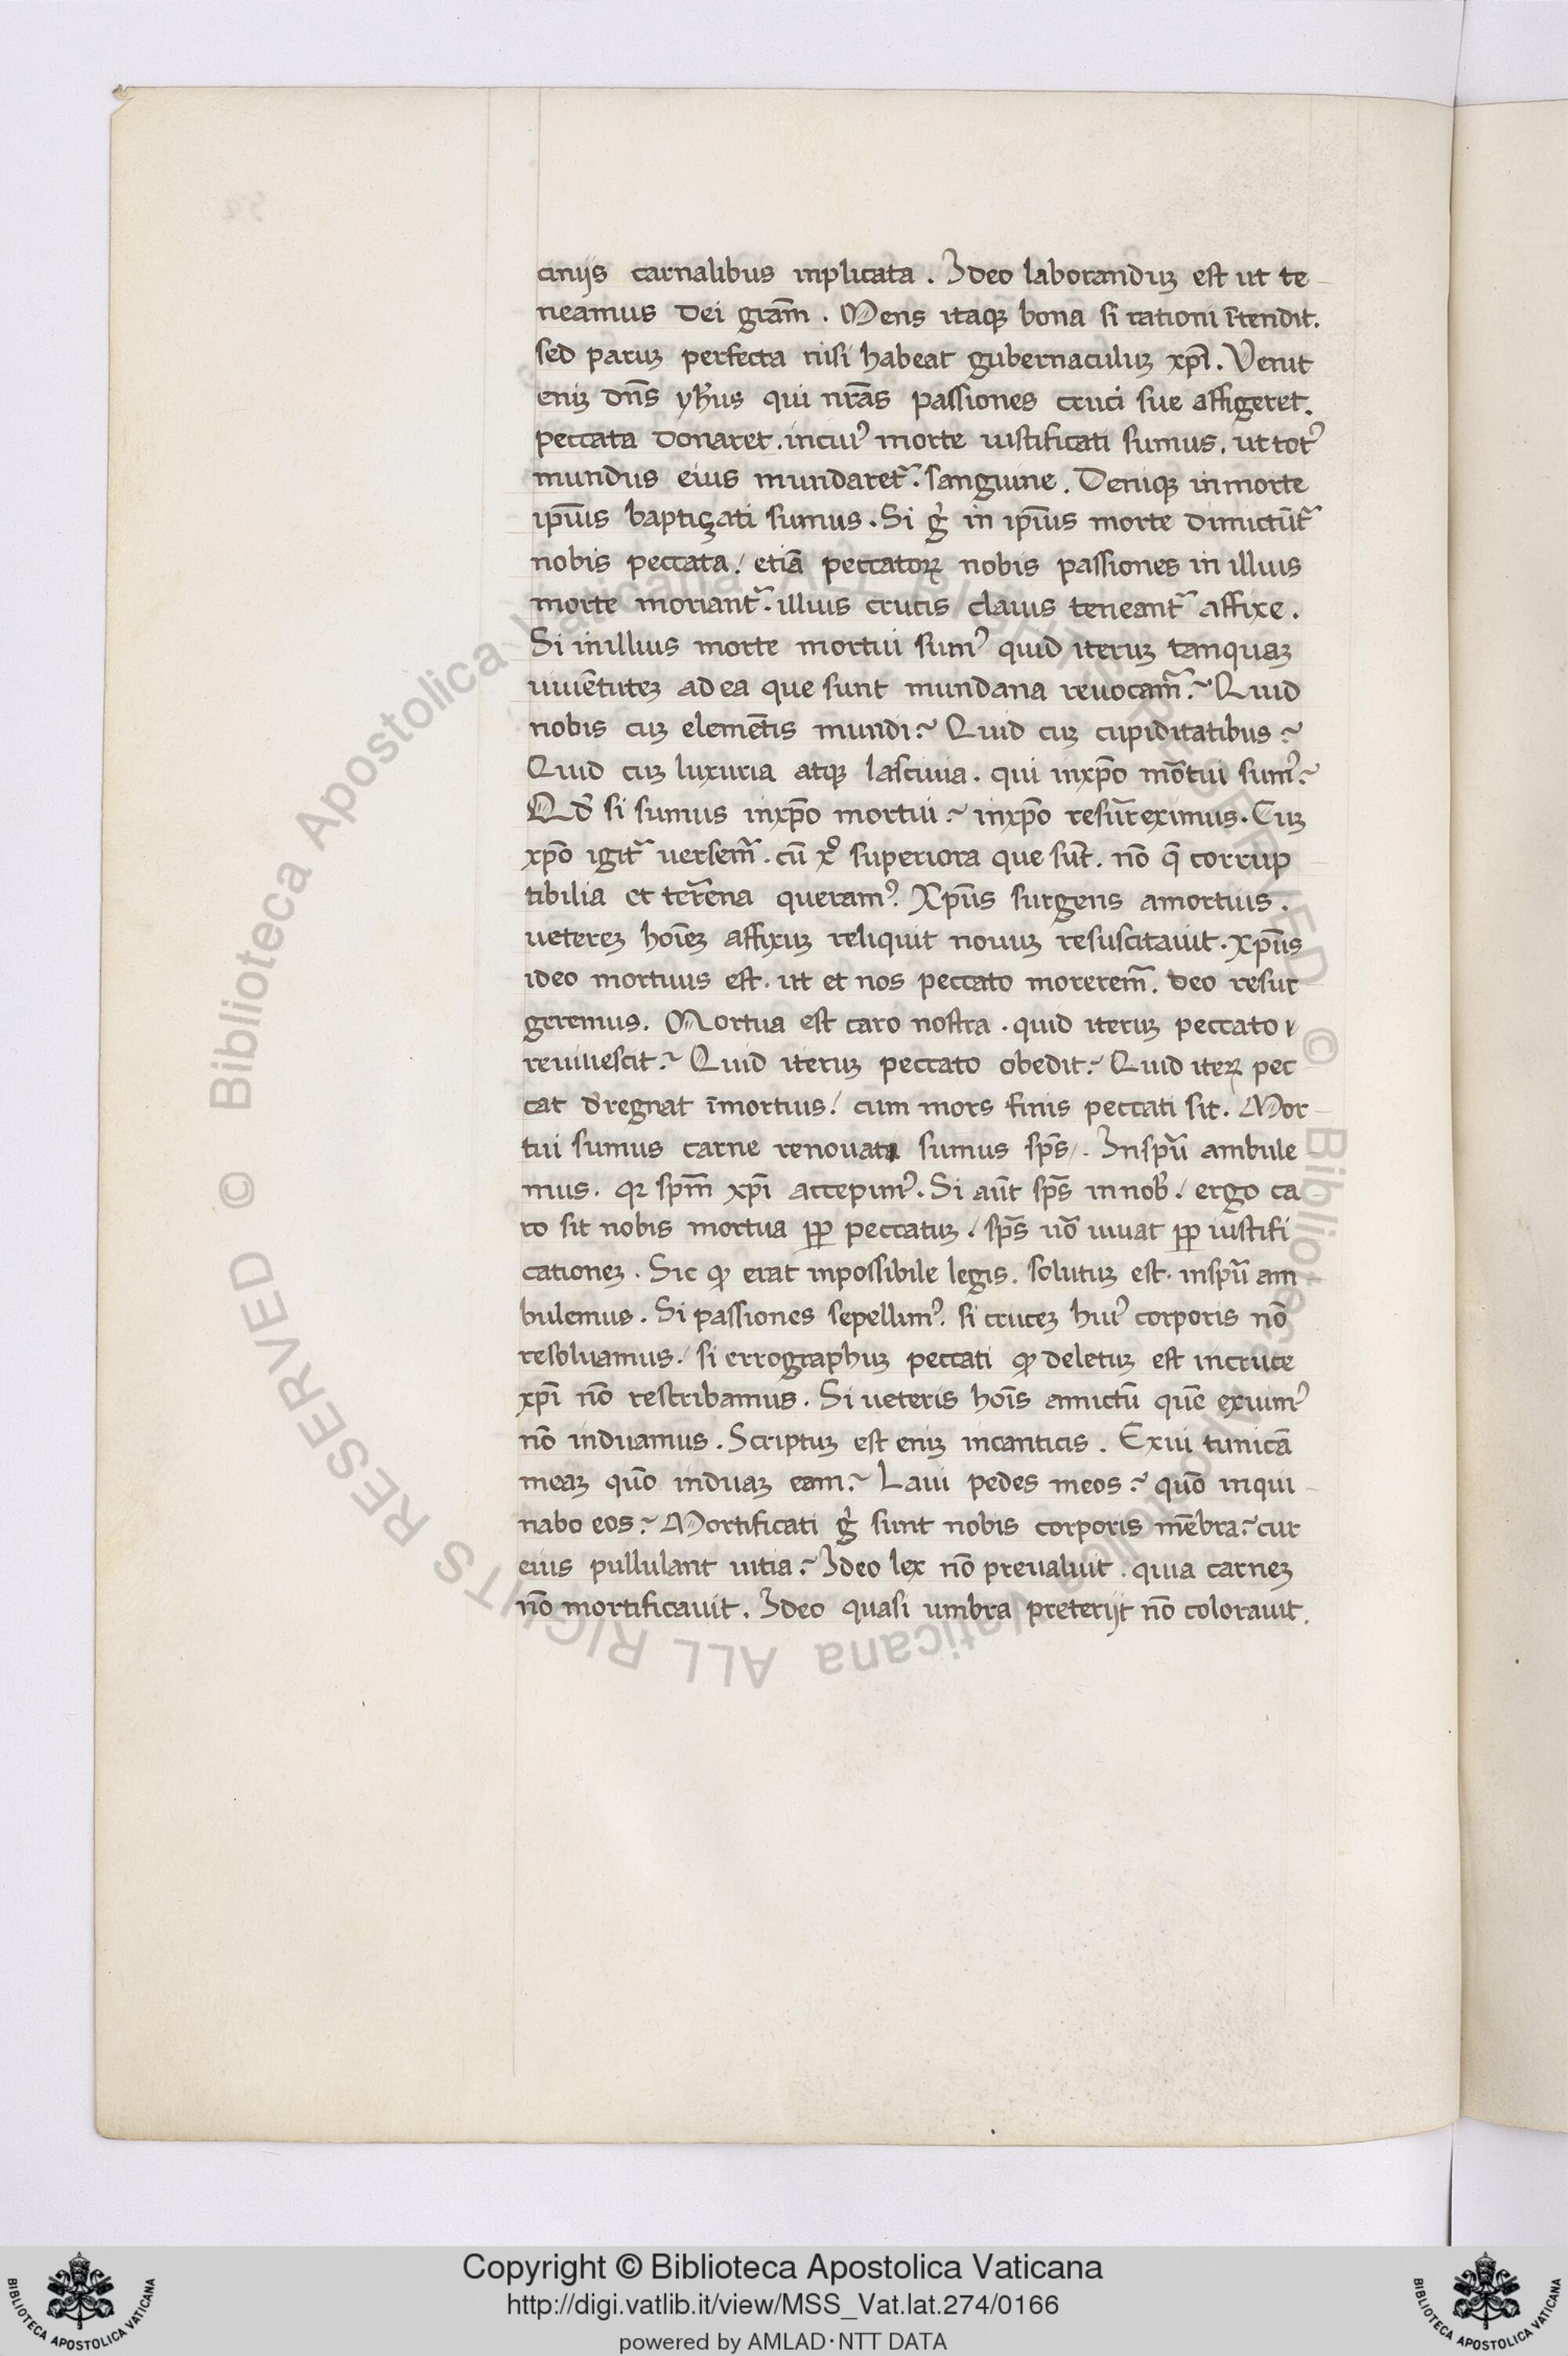 ciniis carnalibus inplicata. Ideo laboranduꝫ est ut te
neamus dei gr̄am. Mens itaqꝫ bona si rationi ītendit.
sed paruꝫ perfecta nisi habeat gubernaculuꝫ xp̄i. Venit
eniꝫ dn̄s yh̄us qui nr̄as passiones cruci sue affigeret.
peccata donaret. in cuiꝰ morte iustificati sumus. ut totꝰ
mundus eius mundaret̃. sanguine. Deniqꝫ in morte
ip̄ius baptiçati sumus. Si g̊ in ip̄ius morte dimictūt̃
nobis peccata / etiā peccatoꝝ nobis passiones in illius
morte moriant̃. illius crucis clauis teneant̃ affixe.
Si in illius morte mortui sumꝰ quid iteruꝫ tanquaꝫ
uiuētuteꝫ ad ea que sunt mundana reuocam̃? Quid
nobis cuꝫ elemētis mundi? Quid cuꝫ cupiditatibus?
Quid cuꝫ luxuria atqꝫ lasciuia. qui in xp̄o mōtui sumꝰ?
Qd̛ si sumus in xp̄o mortui? in xp̄o resur̄eximus. Cuꝫ
xp̄o igit̃ uersem̃. cū x̊ superiora que sūt. nō q̄ corrup
tibilia et ter̄ena queramꝰ. Xp̄us surgens a mortuis.
uetereꝫ hoīeꝫ affixuꝫ reliquit nouuꝫ resuscitauit. Xp̄us
ideo mortuus est. ut et nos peccato morerem̃. deo resur
geremus. Mortua est caro nostra. quid iteruꝫ peccato
reuiuescit? Quid iteruꝫ peccato obedit? Quid iteꝝ pec
cat d̛ regnat ī mortuis / cum mors finis peccati sit. Mor
tui sumus carne renouati sumus sp̄s /. In spū ambule
mus. qꝛ sp̄m xp̄i accepimꝰ. Si aūt sp̄s in nob̛ / ergo ca
ro sit nobis mortua ꝓp peccatuꝫ / sp̄s uō uiuat ꝓp iustifi
cationeꝫ. Sic qͦ erat inpossibile legis. solutuꝫ est. in spū am
bulemus. Si passiones sepellimꝰ. si cruceꝫ huiꝰ corporis nō
resoluamus / si errographuꝫ peccati qͦ deletuꝫ est in cruce
xp̄i nō rescribamus. Si ueteris hoīs amictū quē exuimꝰ
nō induamus. Scriptuꝫ est eniꝫ in canticis. Exui tunicā
meaꝫ quō induaꝫ eam? Laui pedes meos? quō inqui
nabo eos? Mortificati g̊ sunt nobis corporis mēbra? cur
eius pullulant uitia? Ideo lex nō preualuit. quia carneꝫ
nō mortificauit. Ideo quasi umbra preteriit nō colorauit.
© Biblioteca Apostolica Vaticana ALL RIGHTS RESERVED
Copyright © Biblioteca Apostolica Vaticana
http://digi.vatlib.it/view/MSS_Vat.lat.274/0166
powered by AMLAD·NTT DATA
BIBLIOTECA APOSTOLICA VATICANA
BIBLIOTECA APOSTOLICA VATICANA